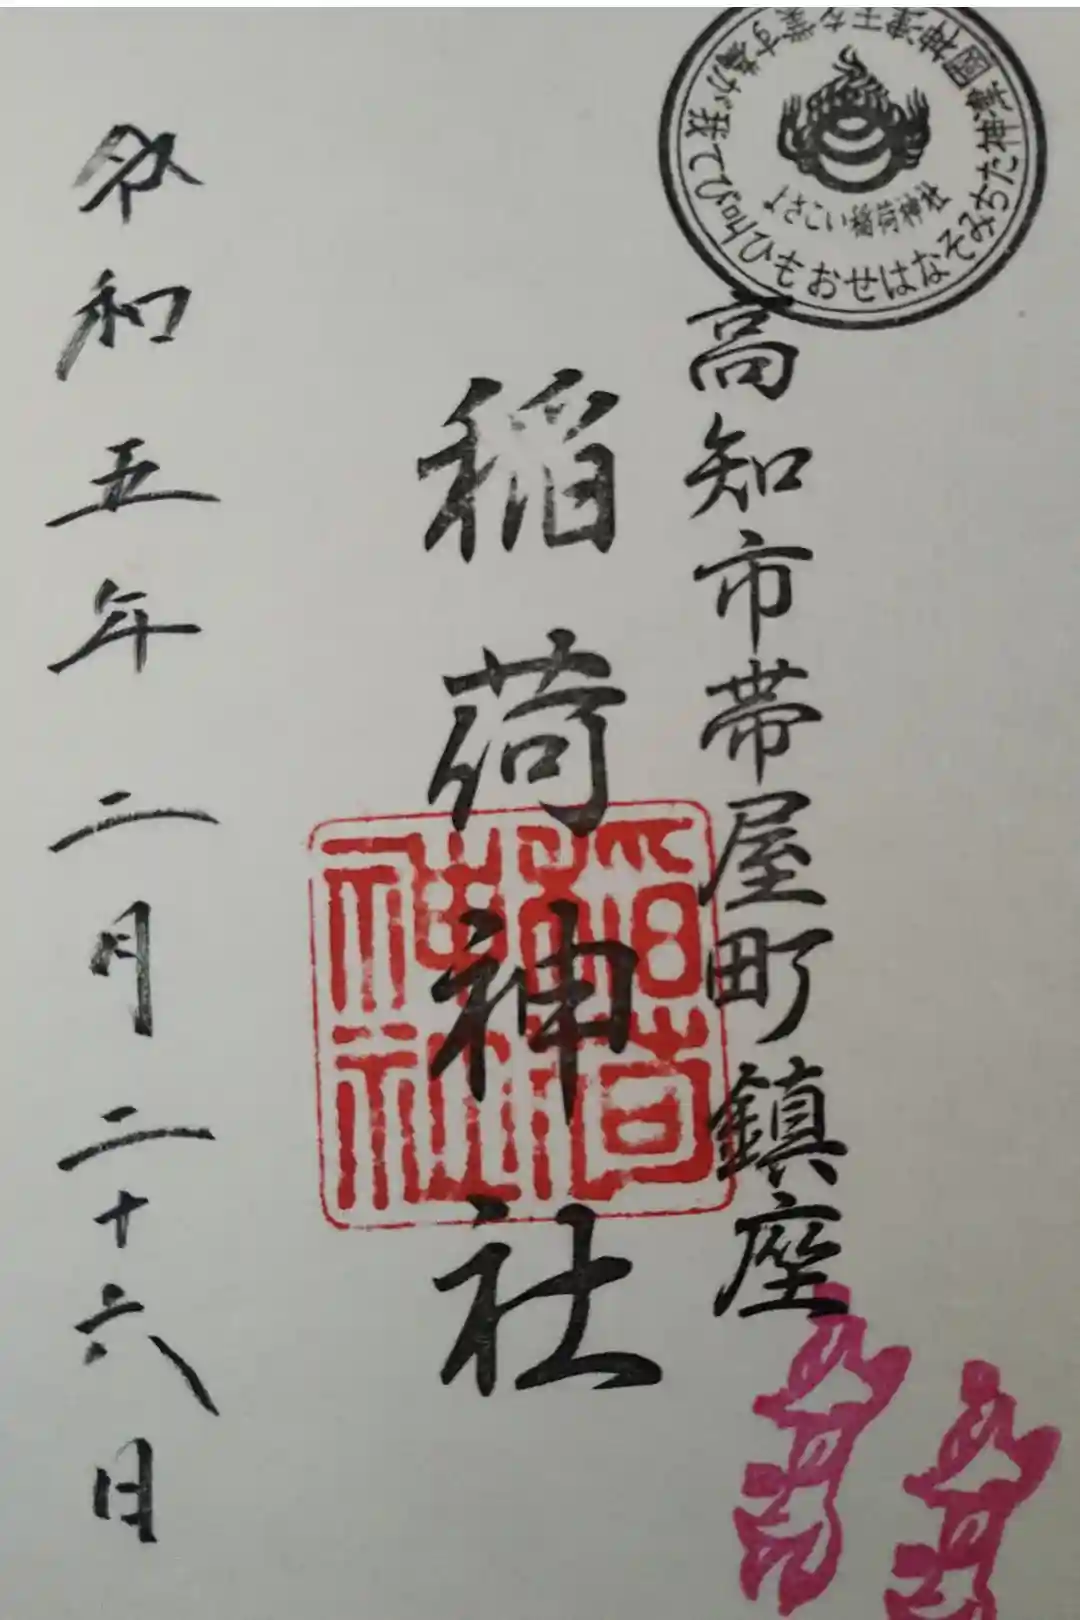 よさこい稲荷神社
高知市帯屋町鎮座
稲荷神社
稲荷神社
令和五年二月二十六日